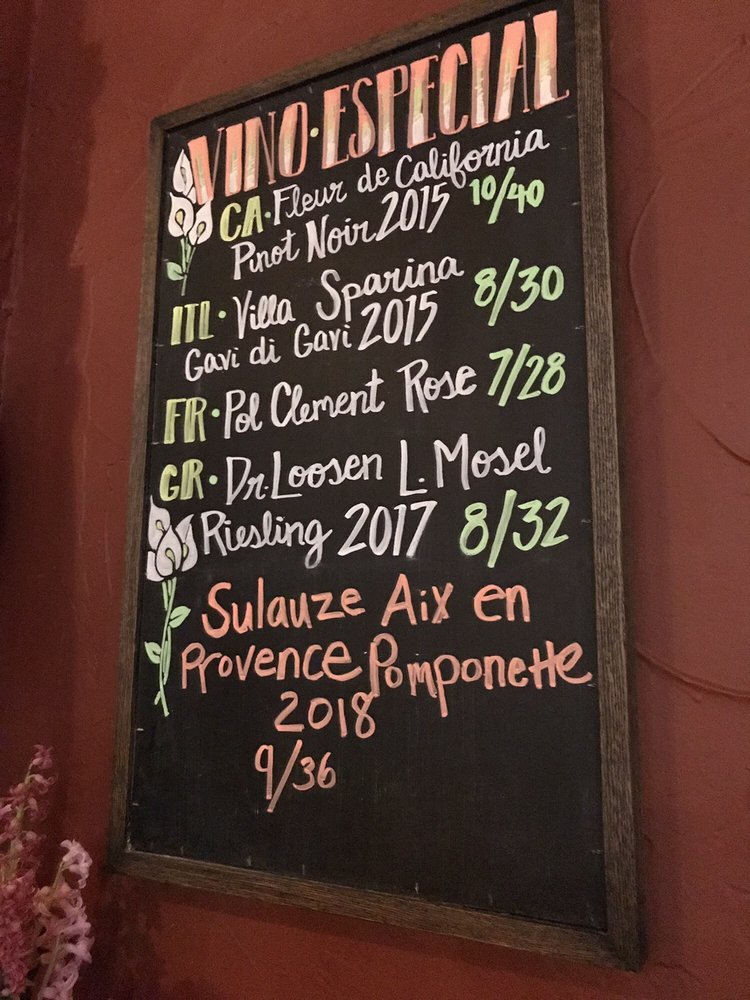 VINO·ESPECIAL
CA·Fleur de California
Pinot Noir 2015 10/40
ITL·Villa Sparina
Gavi di Gavi 2015 8/30
FR·Pol Clement Rose 7/28
GR·Dr. Loosen L. Mosel
Riesling 2017 8/32
Sulauze Aix en
Provence Pomponette
2018
9/36